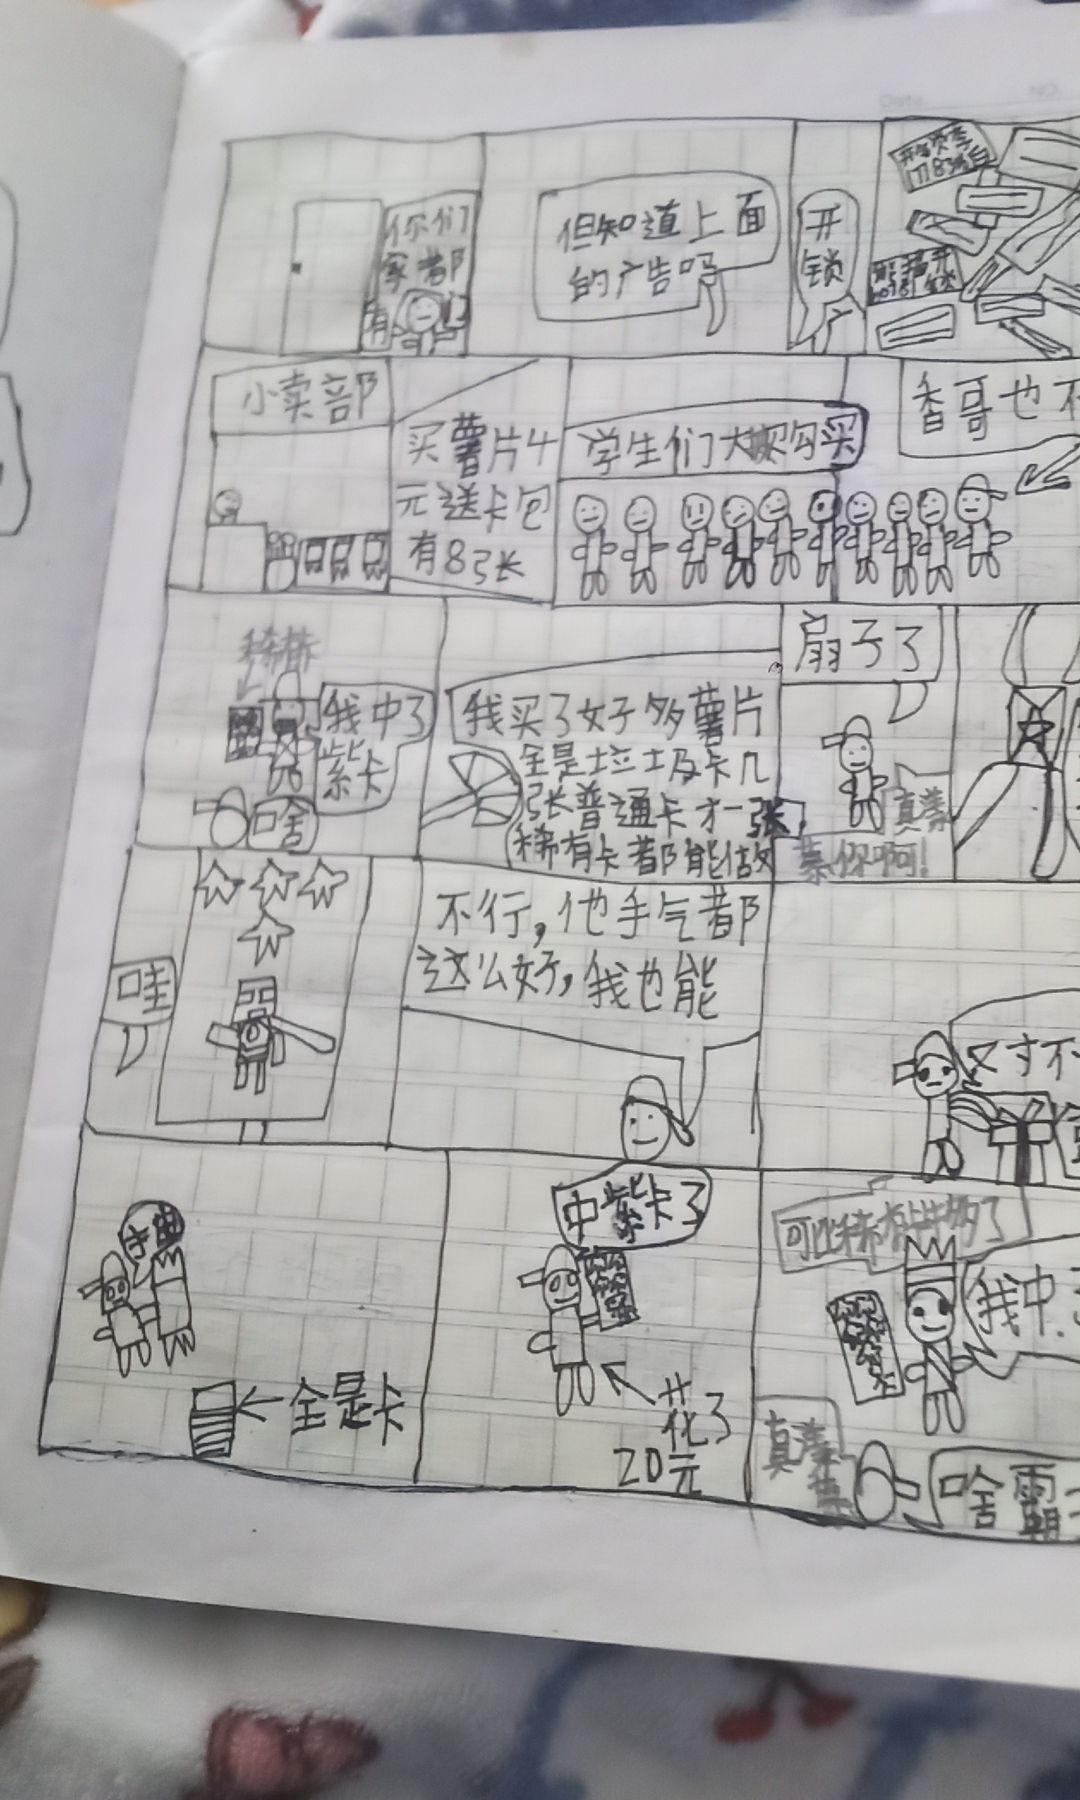 Date. NO.
你们
家都
有
但知道上面
的广告吗
开
锁
小卖部
买薯片4
元送卡包
有8张
学生们大概勾买
香哥也不
稀有
我中了
紫卡
啥
我买了好多薯片
全是垃圾卡几
张普通卡才一张
稀有卡都能做
扇子了
真羡
慕你啊!
哇
不行,他手气都
这么好,我也能
又寸不
全是卡
中紫卡了
花了
20元
可比稀有卡牛多了
我中
真羡
慕
啥霸